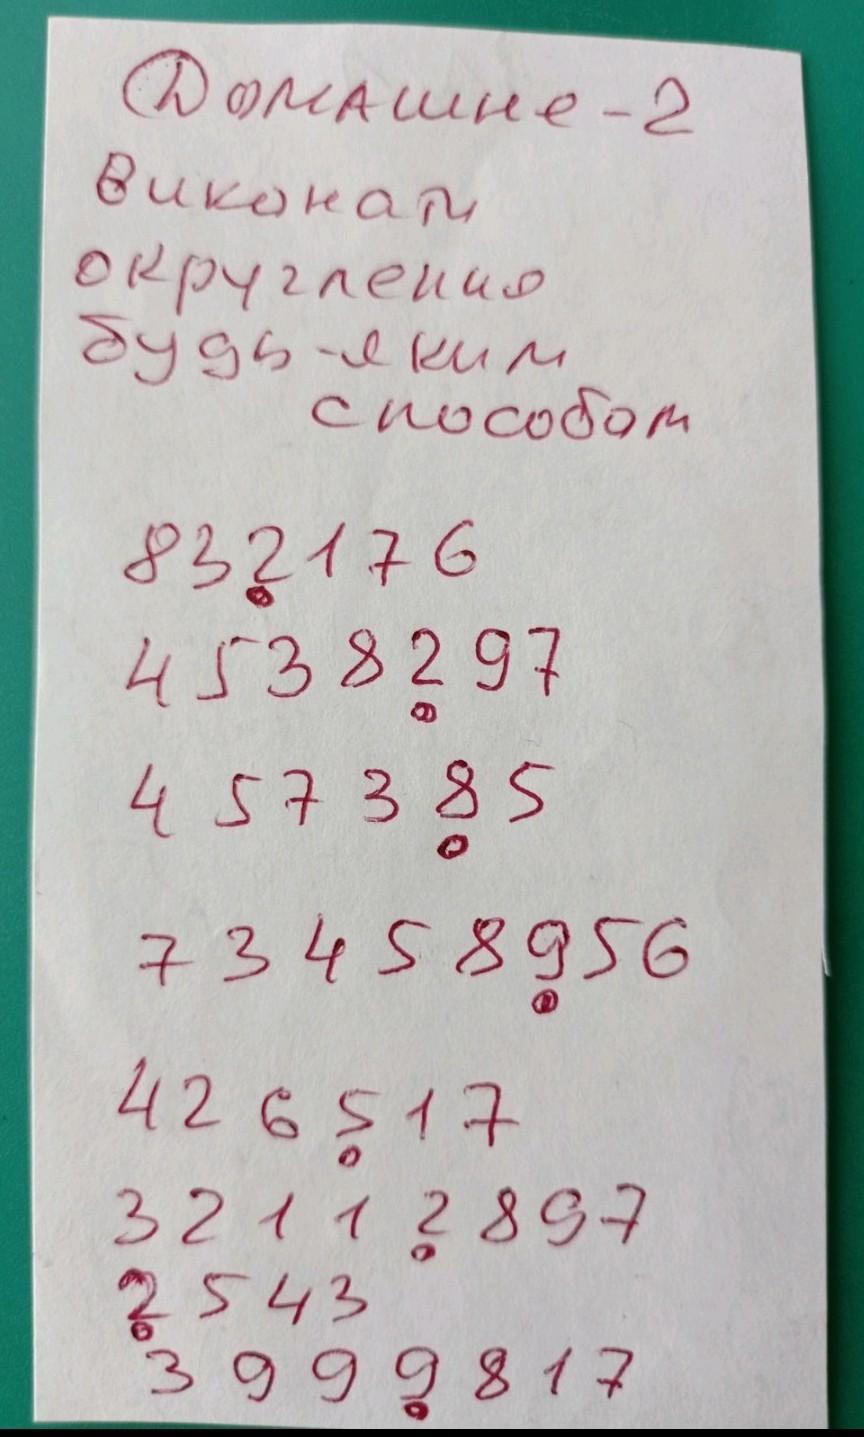 Домашнє-2
Виконати
округлення
будь-яким
способом
832176
4538297
457385
73458956
426517
32112897
2543
3999817